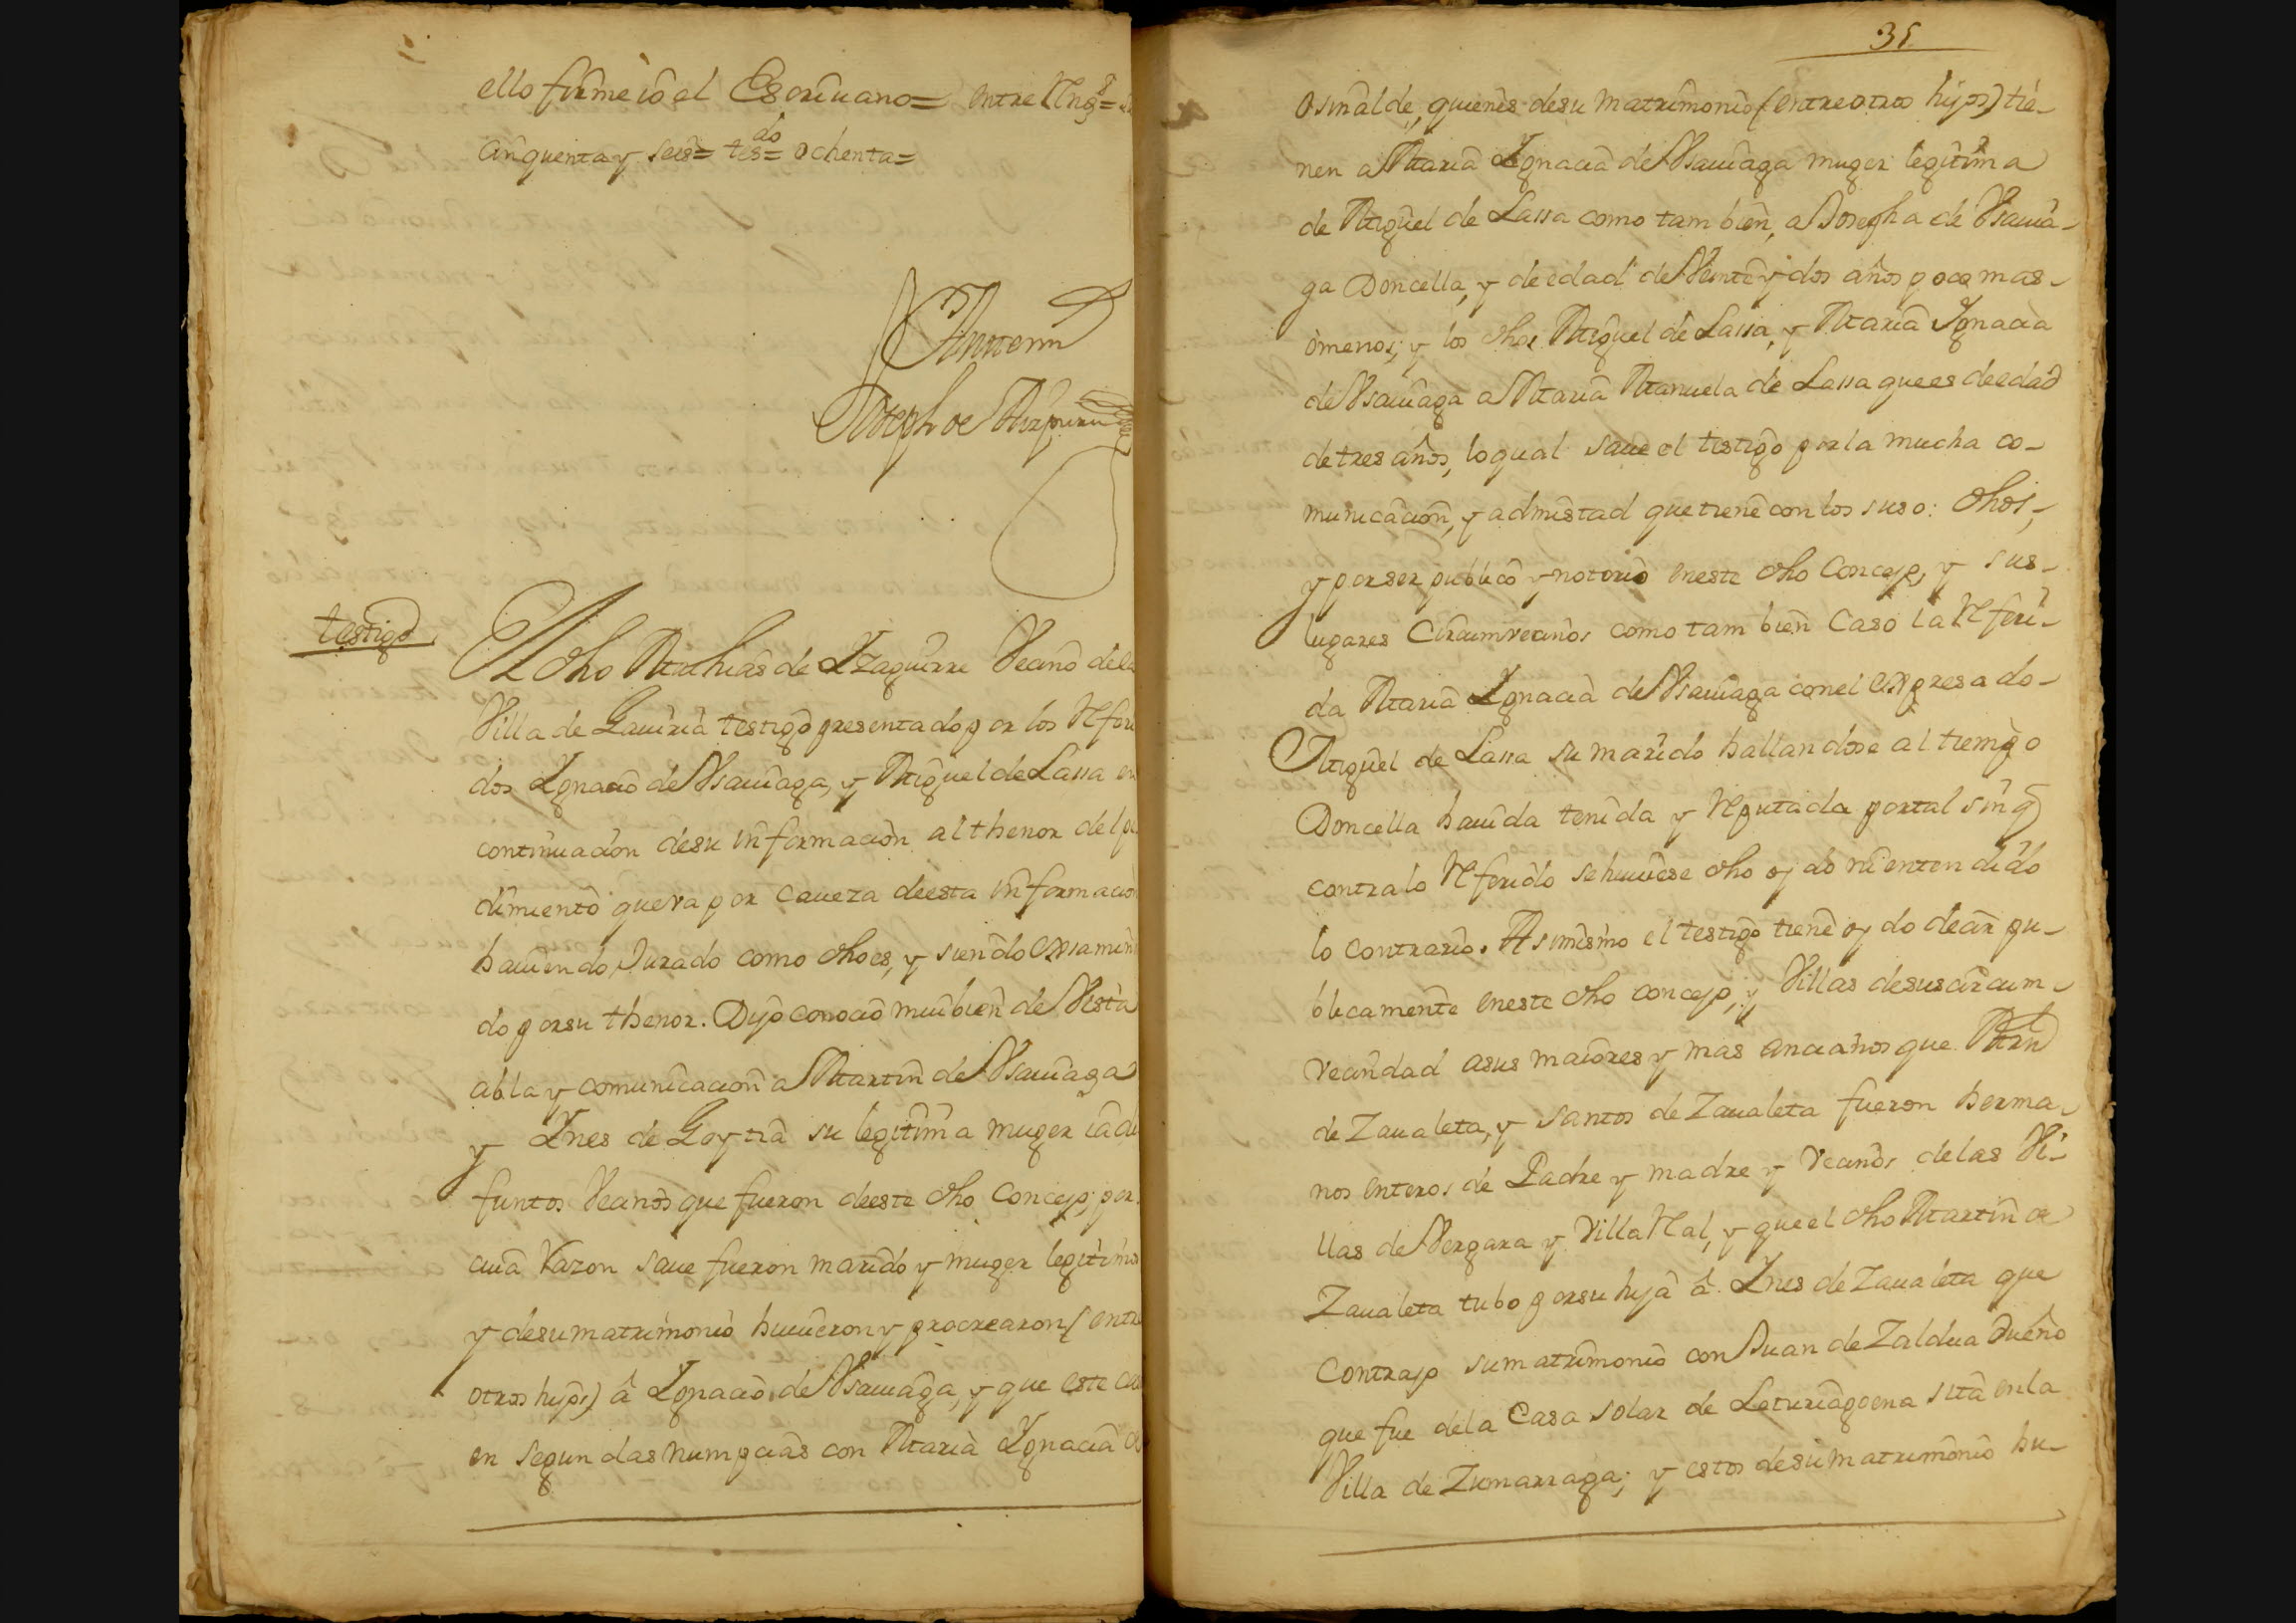 ello firme io el Escriuano= entre Rengs=
cinquenta y seis= tesdo= ochenta=
Ante mi
Joseph de Aizpuru
testigo
El dho Mathias de Yzaguirre Vecino dela
Villa de Gauiria testigo presentado por los Referi
dos Ygnacio de Vsauiaga, y Miguel de Lassa en
continuacion desu informacion al thenor del pe
dimiento que va por caueza deesta informacion
hauiendo Jurado como dho es, y siendo exsamina
do por su thenor. Dijo conocio mui bien de Vista
abla y comunicacion a Martin de Vsauiaga
y Ynes de Goytia su legitima muger ia di
funtos Vecinos que fueron deeste dho Concejo; por
cuia Razon saue fueron marido y muger legitimos
y desu matrimonio huuieron y procrearon (entre
otros hijos) â Ygnacio de Vsauiaga, y que este
en segundas numpcias con Maria Ygnacia de
35
Osinalde, quienes desu matrimonio (entre otros hijos) tie-
nen a Maria Ygnacia de Vsauiaga muger legitima
de Miguel de Lassa como tambien, a Josepha de Vsauia-
ga Doncella, y de edad de Veinte y dos años poco mas-
ómenos; y los dhos Miguel de Lassa, y Maria Ygnacia
de Vsauiaga a Maria Manuela de Lassa que es de edad
de tres años, lo qual saue el testigo por la mucha co-
municacion, y admistad que tiene con los suso: dhos,
y por ser publico y notorio eneste dho Concejo, y sus-
lugares Circumvecinos como tambien Caso la Referi-
da Maria Ygnacia de Vsauiaga con el expresado-
Miguel de Lassa su marido hallandose al tiempo
Doncella hauida tenida y Reputada por tal sin q
contra lo Referido se huuiese dho oydo ni entendido
lo contrario. Asimismo el testigo tiene oydo decir pu-
blicamente eneste dho concejo, y Villas desus circum-
vecindad asus maiores y mas ancianos que Mrn
de Zaualeta, y Santos de Zaualeta fueron herma-
nos enteros de Padre y madre y Vecinos delas Vi-
llas de Vergara y Villa Real, y que el dho Martin de
Zaualeta tubo por su hija â Ynes de Zaualeta que
Contrajo su matrimonio con Juan de Zaldua Dueño
que fue dela Casa solar de Leturiagoena sita enla
Villa de Zumarraga; y estos desu matrimonio hu-